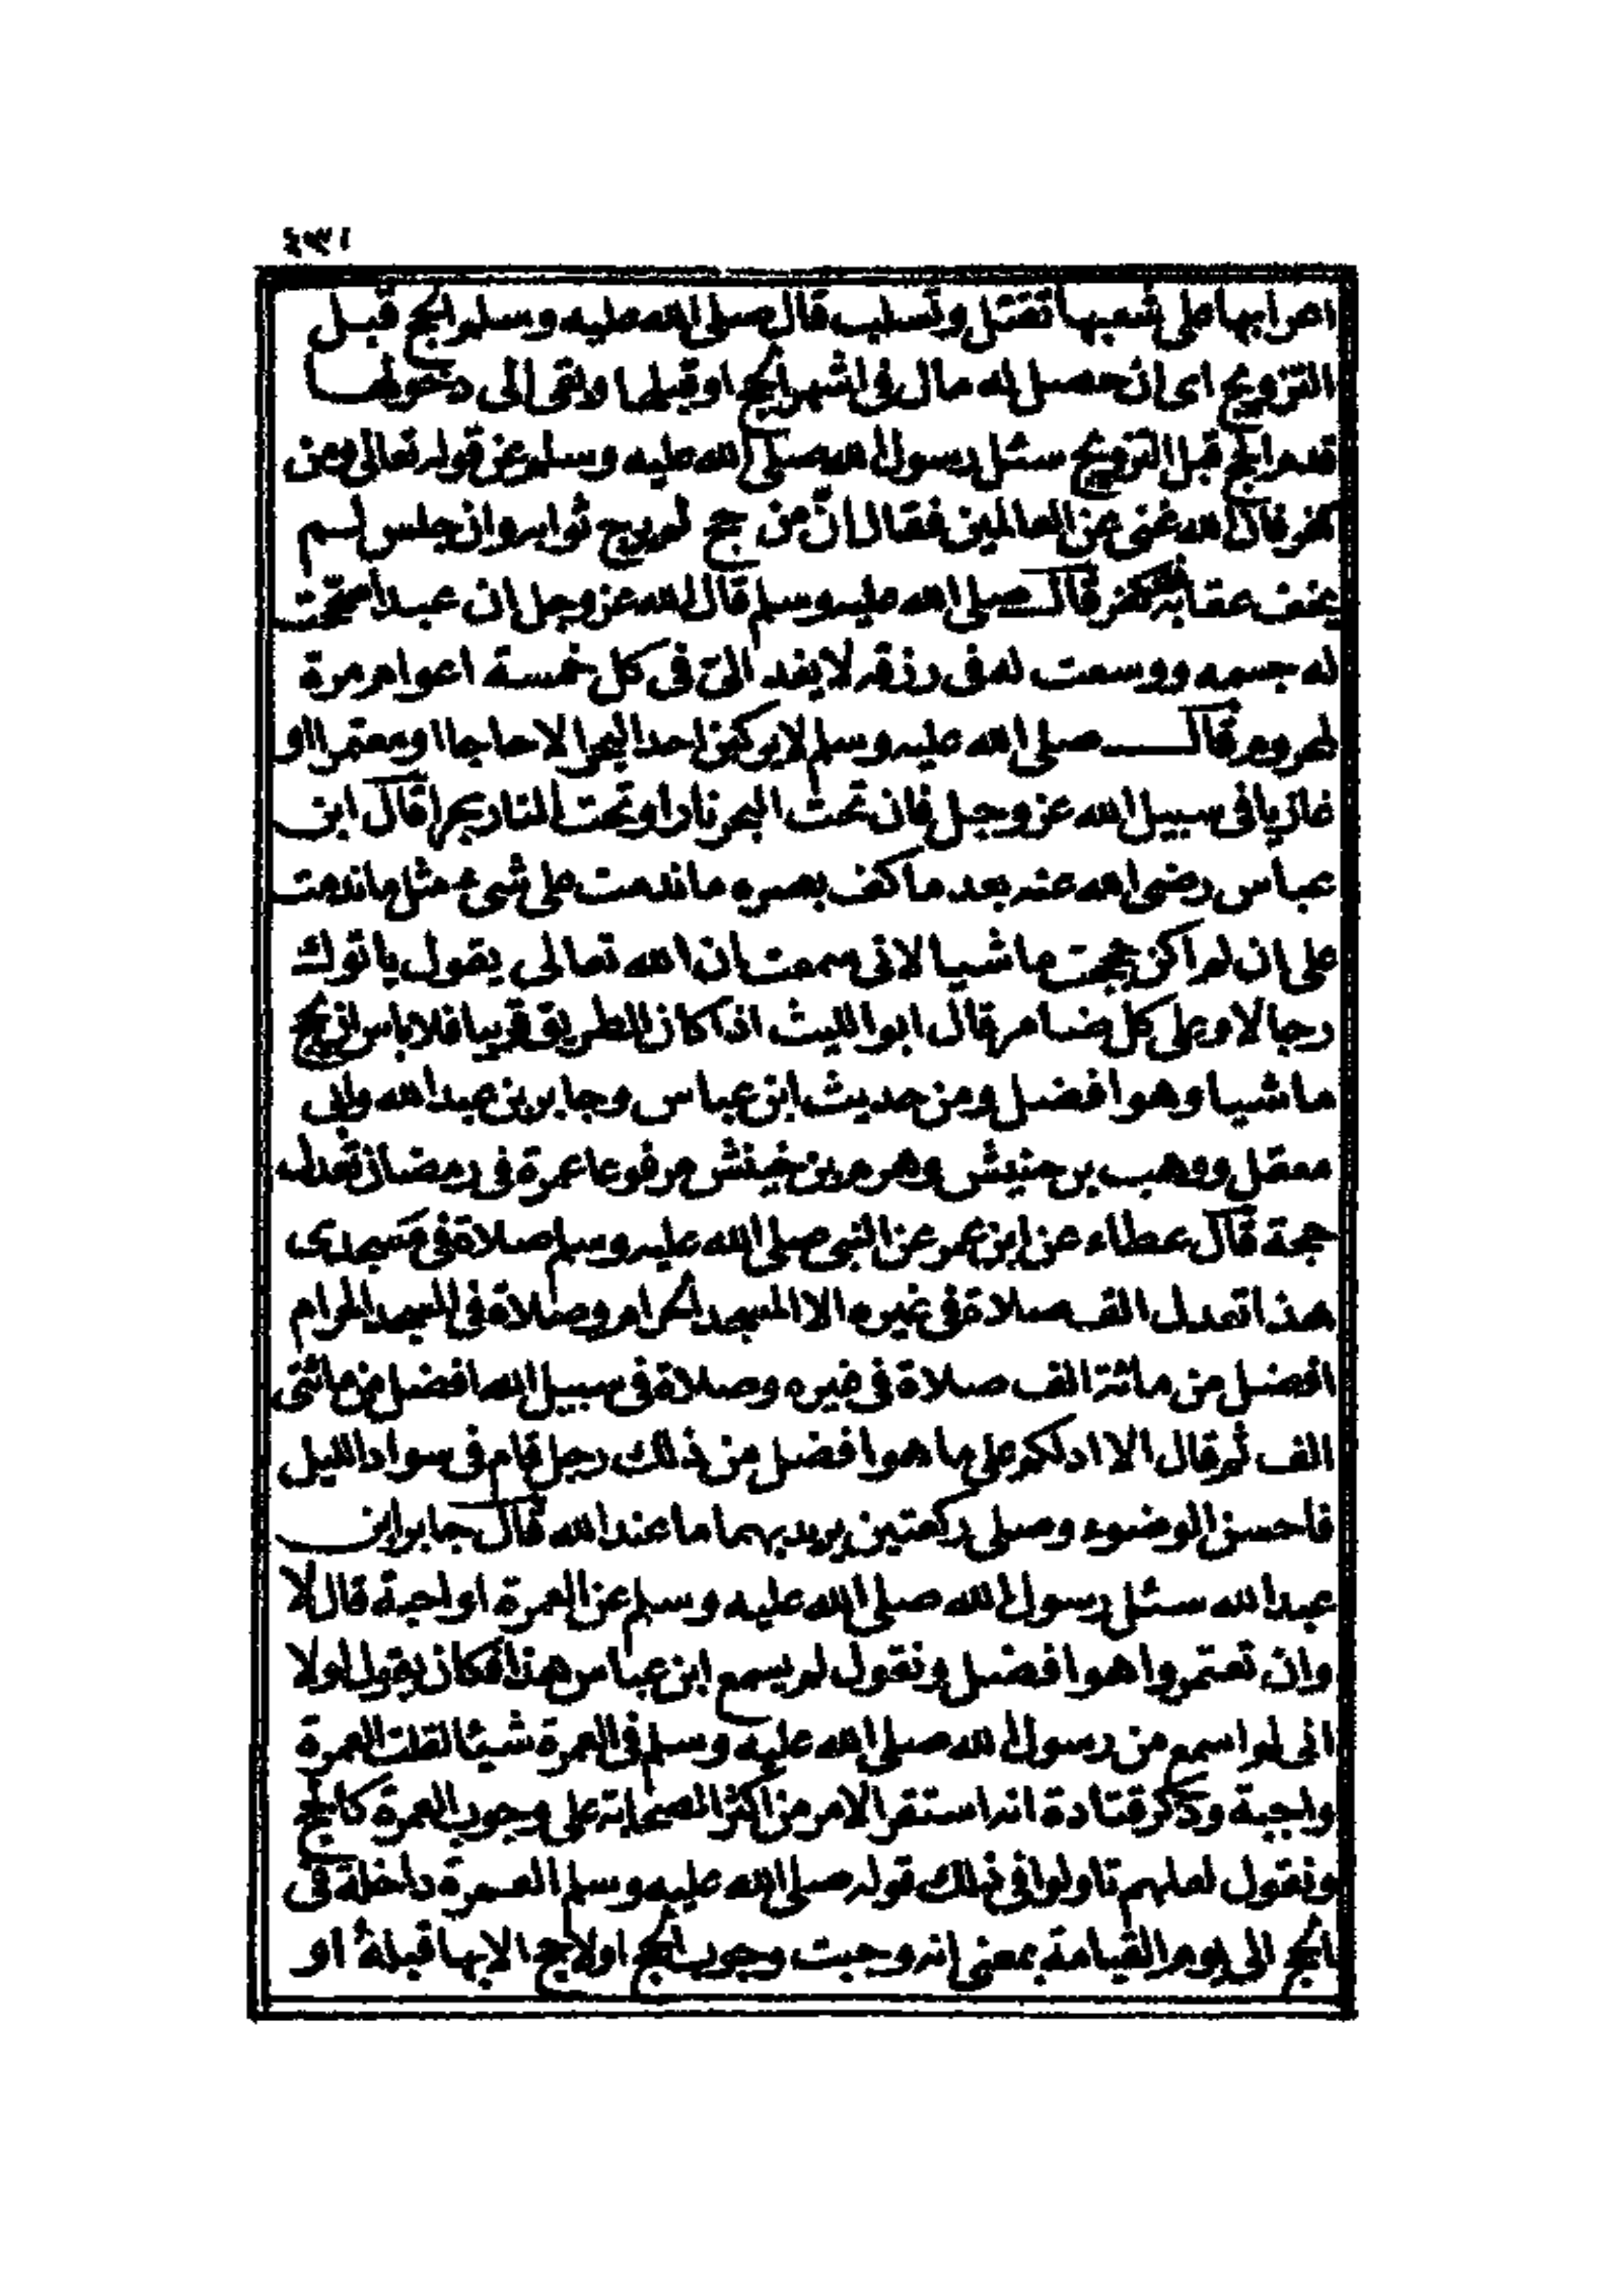 ٤٩١
اعرابها على شعبها تقتل وتسليب قال صلى الله عليه وسلم الحج قبل
التزويج اى ان حصل له مال فى اشهر الحج او قبلها ولقى الى دخولها
قدم الحج قبل التزويج سئل رسول الله صلى الله عليه وسلم عن قوله تعالى ومن
كفر فان الله غنى عن العالمين فقال ان من حج لم يرج ثوابه وان جلس لم
يخف عقابه كفر قال صلى الله عليه وسلم قال الله عز وجل ان عبدا صححت
له جسمه ووسعت له فى رزقه لا يفد الى فى كل خمسة اعوام مرة
لمحروم قال صلى الله عليه وسلم لا يركبن احد البحر الا حاجا او معتمرا او
غازيا فى سبيل الله عز وجل فان تحت البحر نارا وتحت النار بحرا قال ابن
عباس رضى الله عنه بعد ما كف بصره ما ندمت على شىء مثل ما ندمت
على ان لم اكن حججت ماشيا لانى سمعت ان الله تعالى يقول ياتوك
رجالا وعلى كل ضامر قال ابو الليث اذا كان الطريق قريبا فلا باس ان يحج
ماشيا وهو افضل ومن حديث ابن عباس وجابر بن عبد الله وابى
معقل ووهب بن خنبش وهرم بن خنبش مرفوعا عمرة فى رمضان تعدل
حجة قال عطاء عن ابن عمر عن النبى صلى الله عليه وسلم صلاة فى مسجدى
هذا تعدل الف صلاة فى غيره الا المسجد الحرام وصلاة فى المسجد الحرام
افضل من مائة الف صلاة فى غيره وصلاة فى سبيل الله افضل من مائتى
الف ثم قال الا ادلكم على ما هو افضل من ذلك رجل قام فى سواد الليل
فاحسن الوضوء وصلى ركعتين يريد بهما ما عند الله قال جابر ابن
عبد الله سئل رسول الله صلى الله عليه وسلم عن العمرة اواجبة قال لا
وان تعتمروا هو افضل ونقول لم يسمع ابن عباس هذا فكان يقول لولا
انى لم اسمع من رسول الله صلى الله عليه وسلم فى العمرة شيئا لقلت العمرة
واجبة وذكر قتادة انه استقر الامر من اكثر الصحابة على وجوب العمرة كالحج
ونقول لعلهم تاولوا فى ذلك قوله صلى الله عليه وسلم العمرة داخلة فى
الحج الى يوم القيامة بمعنى انه وجبت وجوب الحج اولا حج الا بها قبله او